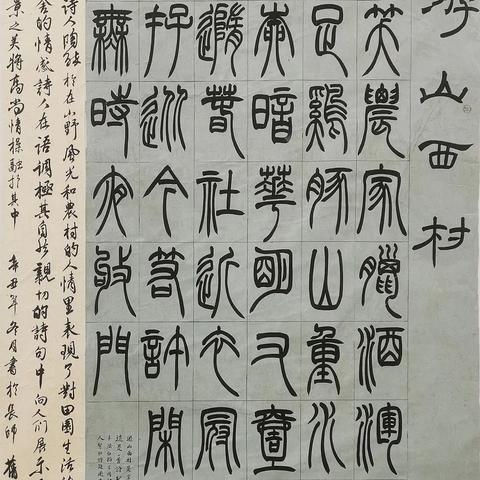 游山西村
笑農家臘酒渾
足雞豚山重水
柳暗華明又壹
隨春社近衣冠
存從今若許閒
無時夜敂門
詩人陶醉於在山野風光和農村的人情里表現了對田園生活的
舍的情感詩人在語調極其自然親切的詩句中向人們展示
景之美將高尚情操融於其中 辛丑年冬月書於長師